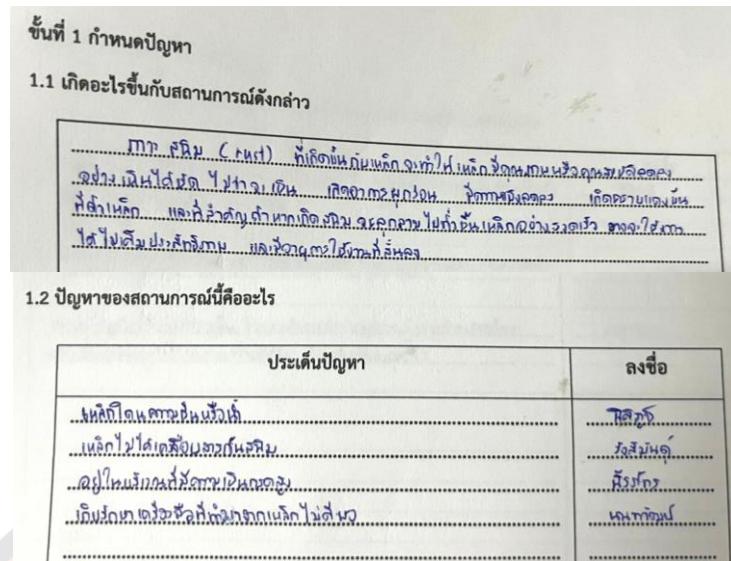 ขั้นที่ 1 กำหนดปัญหา
1.1 เกิดอะไรขึ้นกับสถานการณ์ดังกล่าว
การ สนิม (rust) ที่เกิดขึ้นกับเหล็ก จะทำให้เหล็กมีคุณภาพหรือคุณสมบัติลดลง
อย่างเห็นได้ชัด ไม่ว่าจะเป็น เกิดอาการผุกร่อน มีความแข็งลดลง เกิดคราบแดงขึ้น
ที่ตัวเหล็ก และที่สำคัญถ้าหากเกิดสนิม จะลุกลามไปทั่วชิ้นเหล็กอย่างรวดเร็ว อาจจะใช้งาน
ได้ไม่เต็มประสิทธิภาพ และมีอายุการใช้งานที่สั้นลง
1.2 ปัญหาของสถานการณ์นี้คืออะไร
ประเด็นปัญหา ลงชื่อ
เหล็กโดนความชื้นหรือน้ำ
เหล็กไม่ได้เคลือบสารกันสนิม
อยู่ในบริเวณที่มีความเป็นกรดสูง
เก็บรักษาเครื่องมือที่ทำมาจากเหล็กไม่ดีพอ